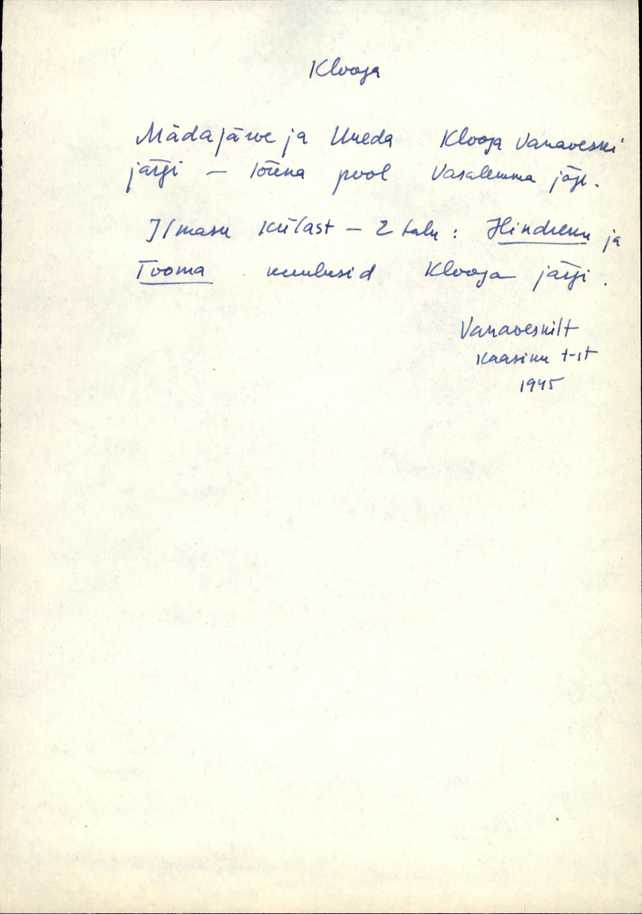 Klooga
Mädajärve ja Uueda Klooga Vanaveski
järgi – lõuna pool Vasalemma jõge.
Ilmasu külast – 2 talu: Hindreku ja
Tooma kuulusid Klooga järgi.
Vanaveskilt
Kaasiku t-st
1945